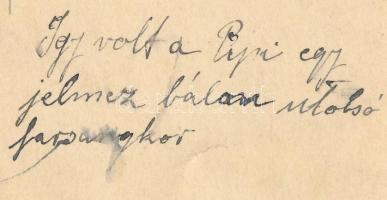 Igy volt a Pipi egy
jelmez bálon utolsó
farsangkor